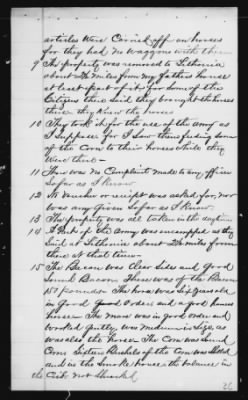 articles were Carried off on horses
for they had no waggons with them
9 The property was removed to Lithonia
about 2½ miles from my fathers house
at least part of it for some of the
Citizens there said they brought the horses
there they knew the horses
10 They took it for the use of the army as
I suppose for I saw them feeding some
of the Corn to their horses while they
were there —
11 There was no Complaint made to any officer
so far as I know
12 No voucher or receipt was asked for, nor
was any given so far as I know
13 The property was all taken in the daytime
14 A Part of the Army was encamped as they
said at Lithonia about 2½ miles from
there at that time —
15 The Bacon was Clear Sides and Good
Sound Bacon there was of the Bacon
151 pounds The horse was Six years old
in good order and a good
horse — The mare was in good order and
worked gently, was medium size, as
was also the horse The Corn was Sound
Corn Sixteen Bushels of the Corn was Shelled
and in the Smoke house the balance in
the Crib not Shucked